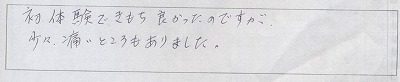 初体験できもち良かったのですが、
少々、痛いところもありました。